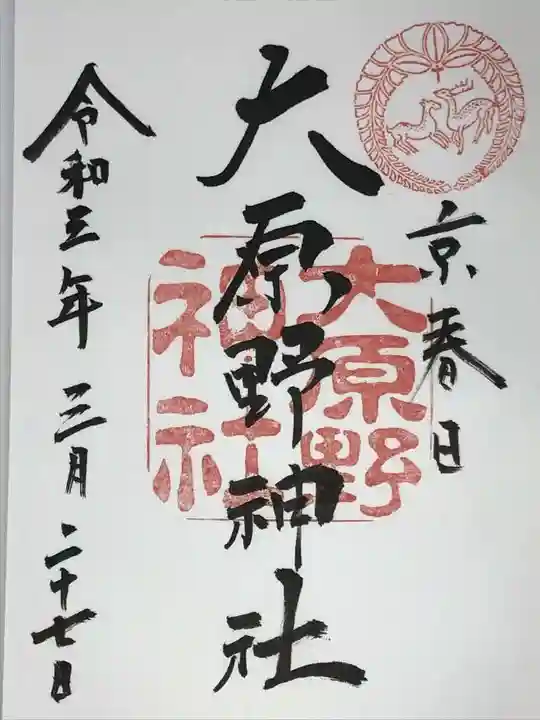 京春日
大原野神社
大原野
神社
令和三年 三月 二十七日